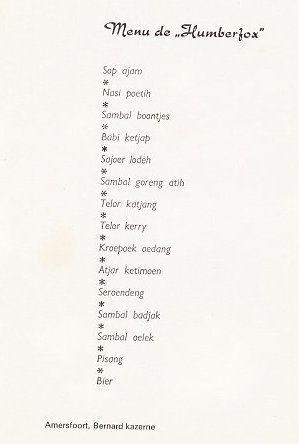 Menu de „Humberfox"
Sop ajam
*
Nasi poetih
*
Sambal boontjes
*
Babi ketjap
*
Sajoer lodeh
*
Sambal goreng atih
*
Telor katjang
*
Telor kerry
*
Kroepoek oedang
*
Atjar ketimoen
*
Seroendeng
*
Sambal badjak
*
Sambal oelek
*
Pisang
*
Bier
Amersfoort, Bernard kazerne